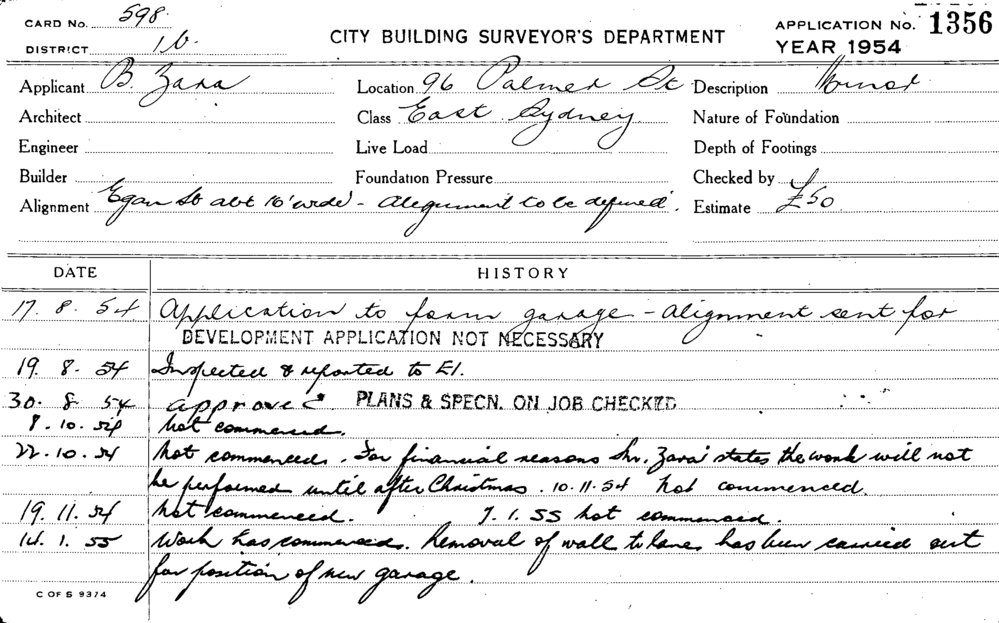 CARD No. 598
DISTRICT 10.
CITY BUILDING SURVEYOR'S DEPARTMENT
APPLICATION No. 1356
YEAR 1954
Applicant B. Zara
Location 96 Palmer St
Description Minor
Architect
Class East Sydney
Nature of Foundation
Engineer
Live Load
Depth of Footings
Builder
Foundation Pressure
Checked by
Alignment Egan St abt 10' wide - Alignment to be defined.
Estimate £50
DATE HISTORY
17. 8. 54 Application to form garage - Alignment sent for
DEVELOPMENT APPLICATION NOT NECESSARY
19. 8. 54 Inspected & reported to E1.
30. 8. 54 approved PLANS & SPECN. ON JOB CHECKED
8.10.54 Not commenced.
22.10.54 Not commenced. For financial reasons Mr. Zara states the work will not
be performed until after Christmas. 10.11.54 Not commenced.
19.11.54 Not commenced. 7.1.55 Not commenced.
14.1.55 Work has commenced. Removal of wall to lane has been carried out
for position of new garage.
C OF S 9374